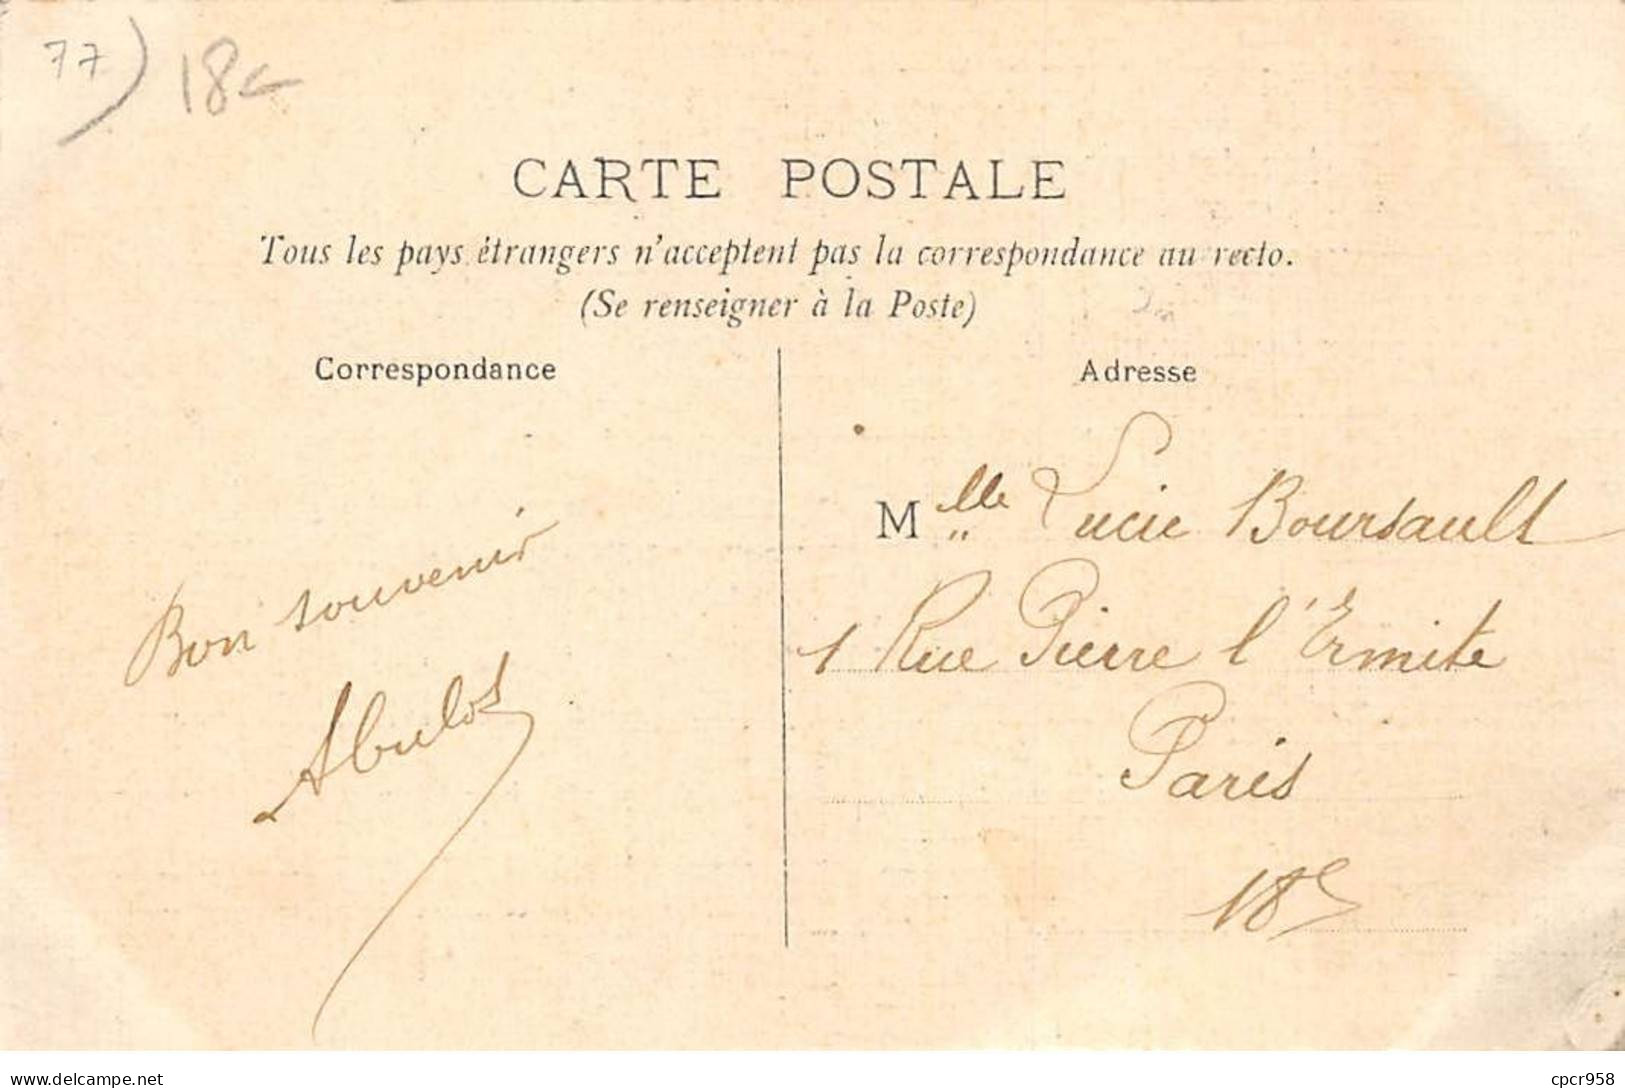 77) 18€
CARTE POSTALE
Tous les pays étrangers n'acceptent pas la correspondance au recto.
(Se renseigner à la Poste)
Correspondance
Bon souvenir
Adresse
Mlle Lucie Boursault
1 Rue Pierre l'Ermite
Paris
18e
delcampe.net
cpcr958